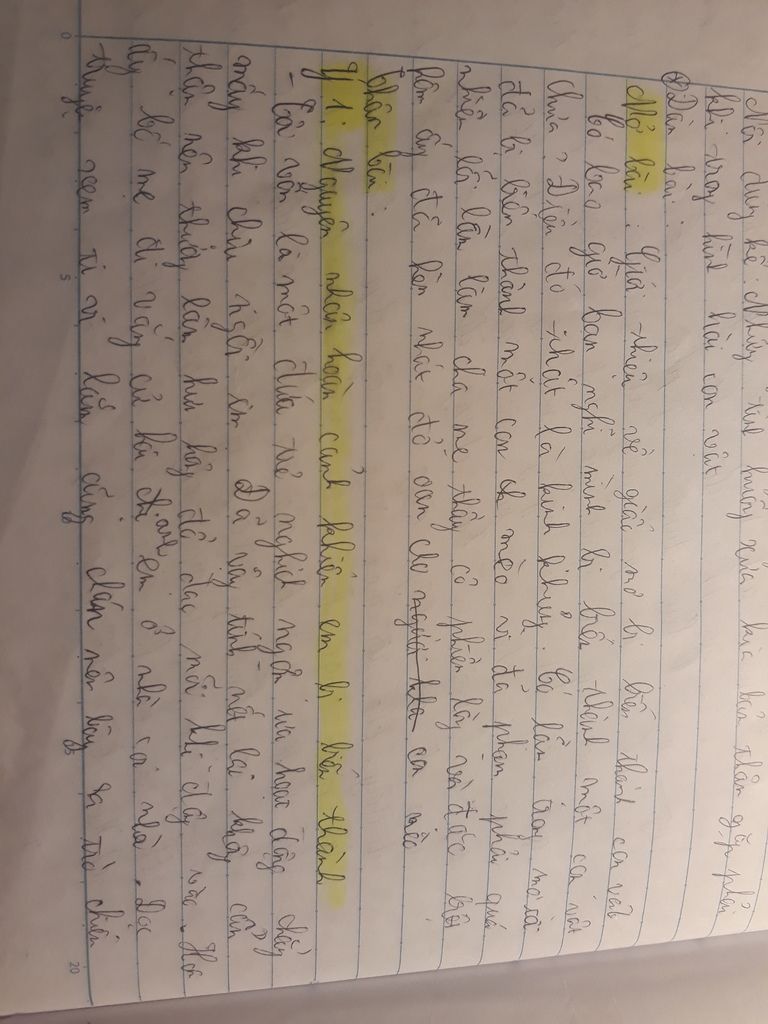 Nội dung kể: Những tình huống xưa kia bản thân gặp phải
khi trong hình hài con vật
* Dàn bài:
Mở bài: Giới thiệu về giấc mơ bị biến thành con vật
Có bao giờ bạn nghĩ mình bị biến thành một con vật
chưa, Điều đó thật là kinh khủng. Có lần trong mơ tôi
đã bị biến thành một con mèo vì đã phạm phải quá
nhiều lỗi lầm làm cha mẹ thầy cô phiền lòng và đặc biệt
hôm ấy đã đổ oan cho con mèo
Thân bài:
Ý 1: Nguyên nhân hoàn cảnh khiến em bị biến thành
- Tôi vốn là một đứa trẻ nghịch ngợm ưa hoạt động chẳng
mấy khi chịu ngồi im Đã vậy tính nết lại không cẩn
thận nên thường làm hư hỏng đồ đạc mỗi khi động vào. Hôm
ấy bố mẹ đi vắng cử hai anh em ở nhà coi nhà. Đọc
truyện xem ti vi lắm cũng chán nên bày ra trò chiến